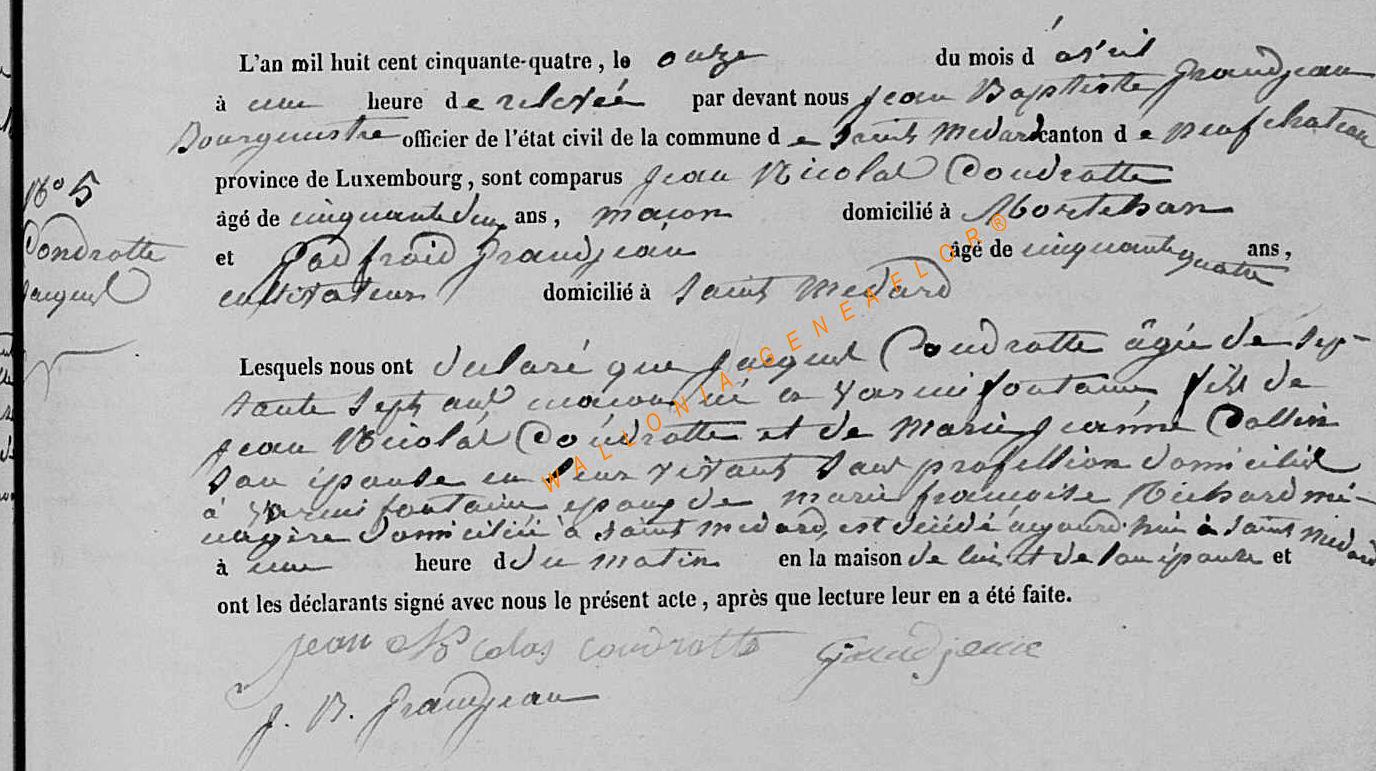 L'an mil huit cent cinquante-quatre, le onze du mois d'avril
à une heure de relevée par devant nous Jean Baptiste Grandjean
Bourgmestre officier de l'état civil de la commune de Saint Medard canton de Neufchateau
province de Luxembourg, sont comparus Jean Nicolas Coudrotte
âgé de cinquante deux ans, maçon domicilié à Mortehan
et Godfroid Grandjean âgé de cinquante quatre ans,
cultivateur domicilié à Saint Medard
N° 5
Condrotte
Jacques
Lesquels nous ont déclaré que Jacques Coudrotte âgée de sep-
tante sept ans maçon né a Varmifontaine fils de
Jean Nicolas Coudrotte et de Marie Jeanne Collin
son épouse en leur vivant sans profession domicilies
à Varmifontaine epoux de marie françoise Richard mé-
nagère domiciliée à Saint Medard, est décédé aujourd'hui à Saint Medard
à une heure d du matin en la maison de lui et de son épouse et
ont les déclarants signé avec nous le présent acte, après que lecture leur en a été faite.
Jean Nicolas Coudrotte Grandjean
J. B. Grandjean
WALLONIA GENEAFLOR®